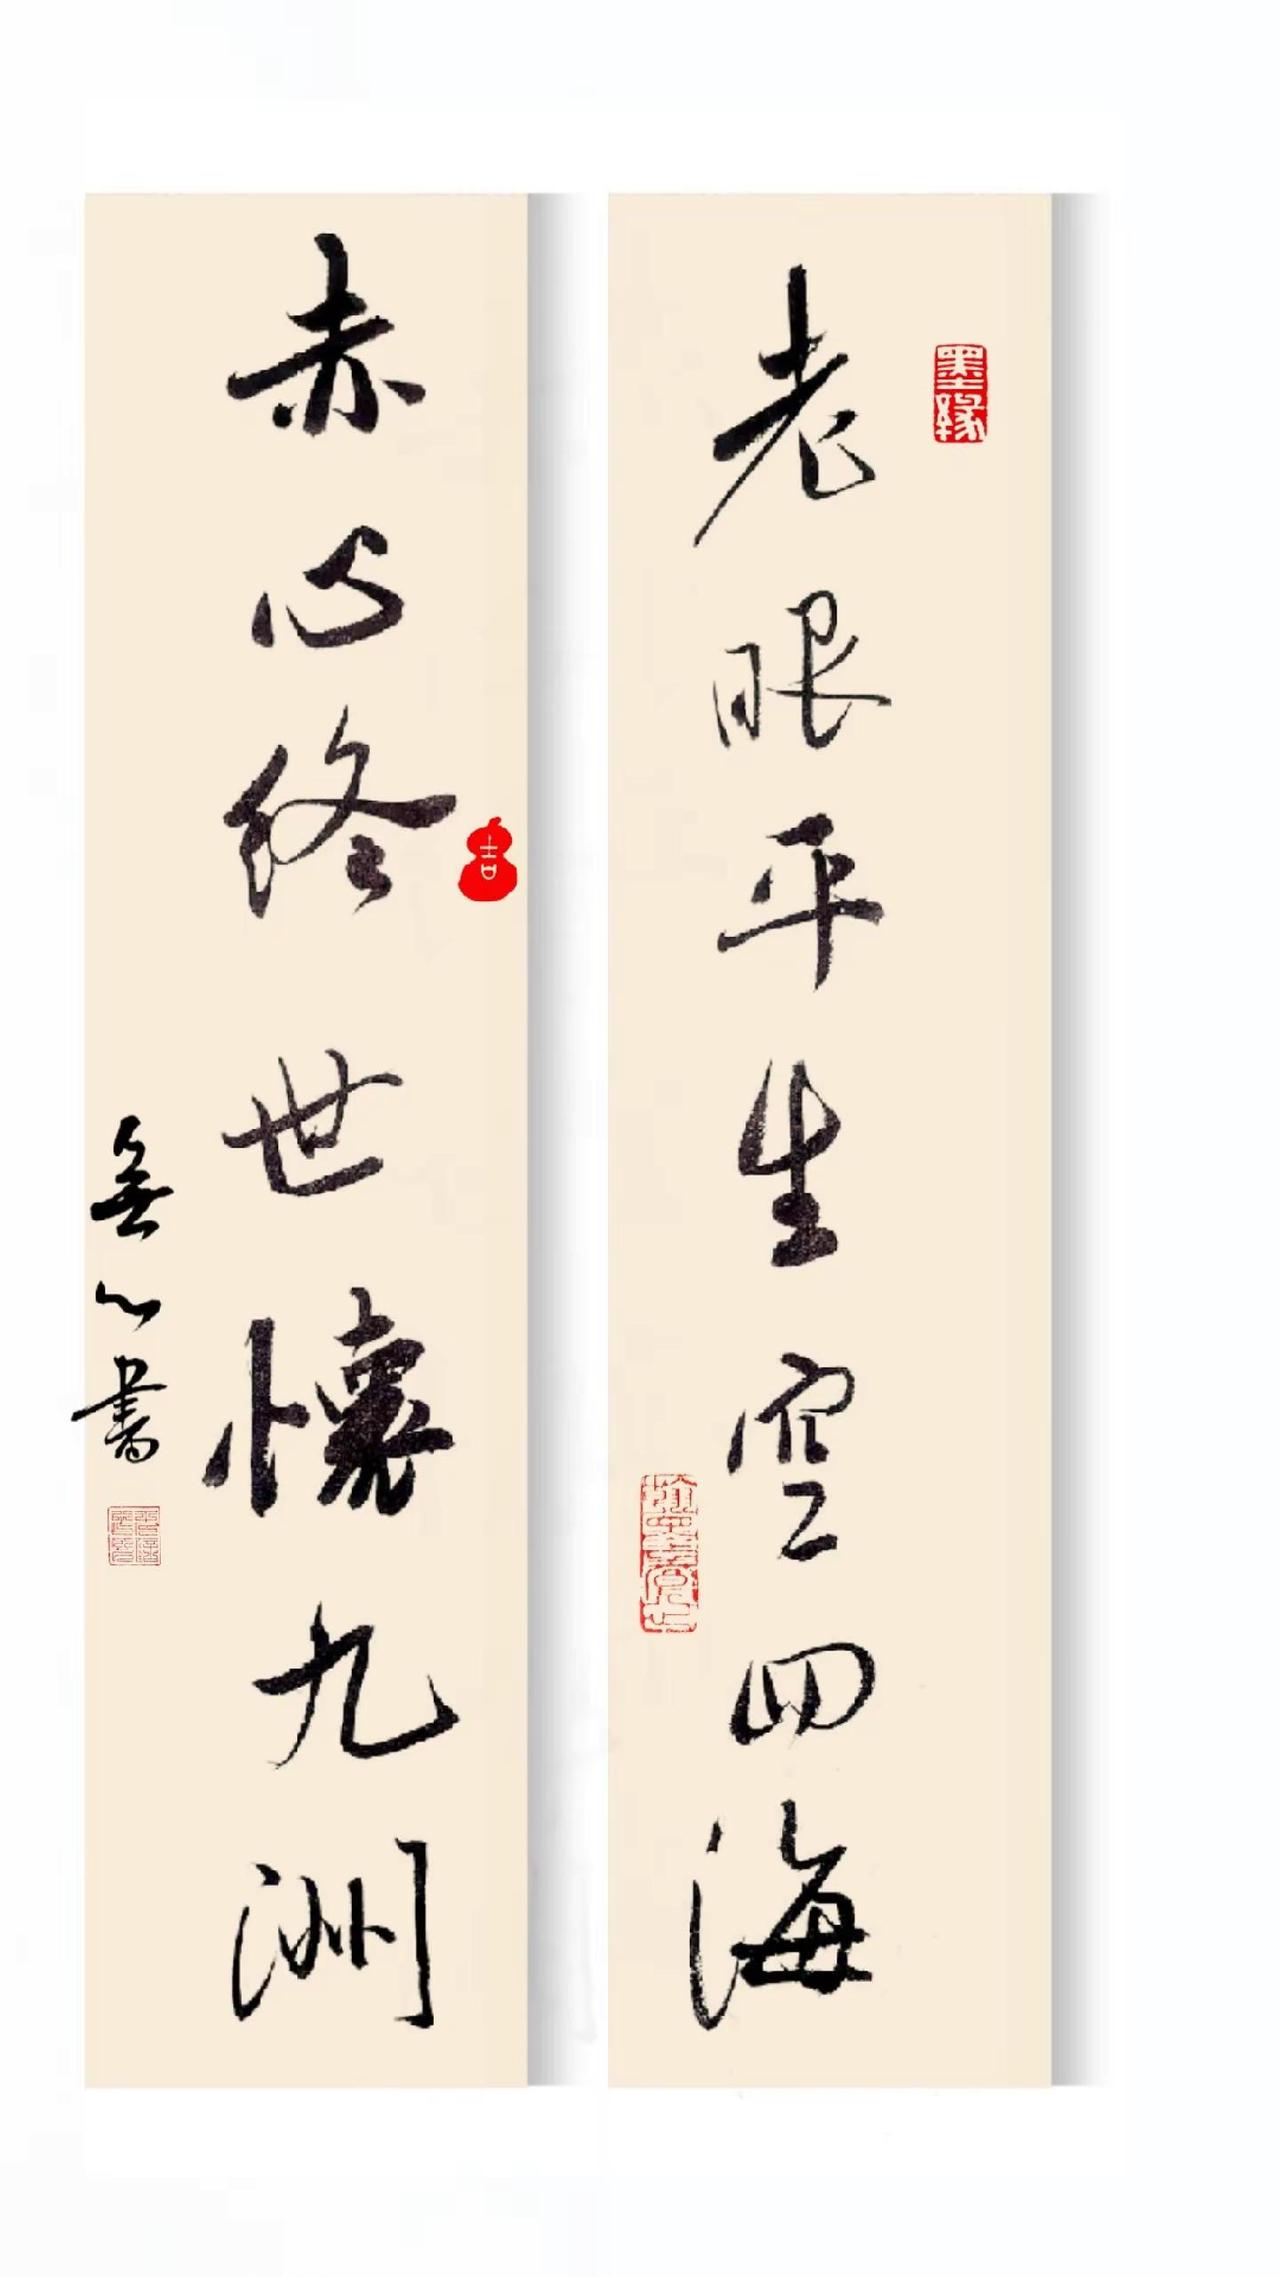 老眼平生空四海
赤心终世懷九洲
無心書
墨缘
吉